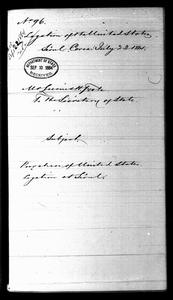 No 96.
Legation of the United States
Seoul Corea July 22 1884.
DEPARTMENT OF STATE
SEP 10 1884
RECEIVED
Mr Lucius H. Foote
To the Secretary of State.
Subject,
of United States
Legation at Seoul.